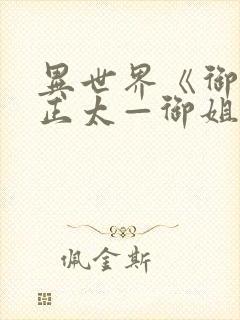 異世界《御
正太—御姐
佩金斯